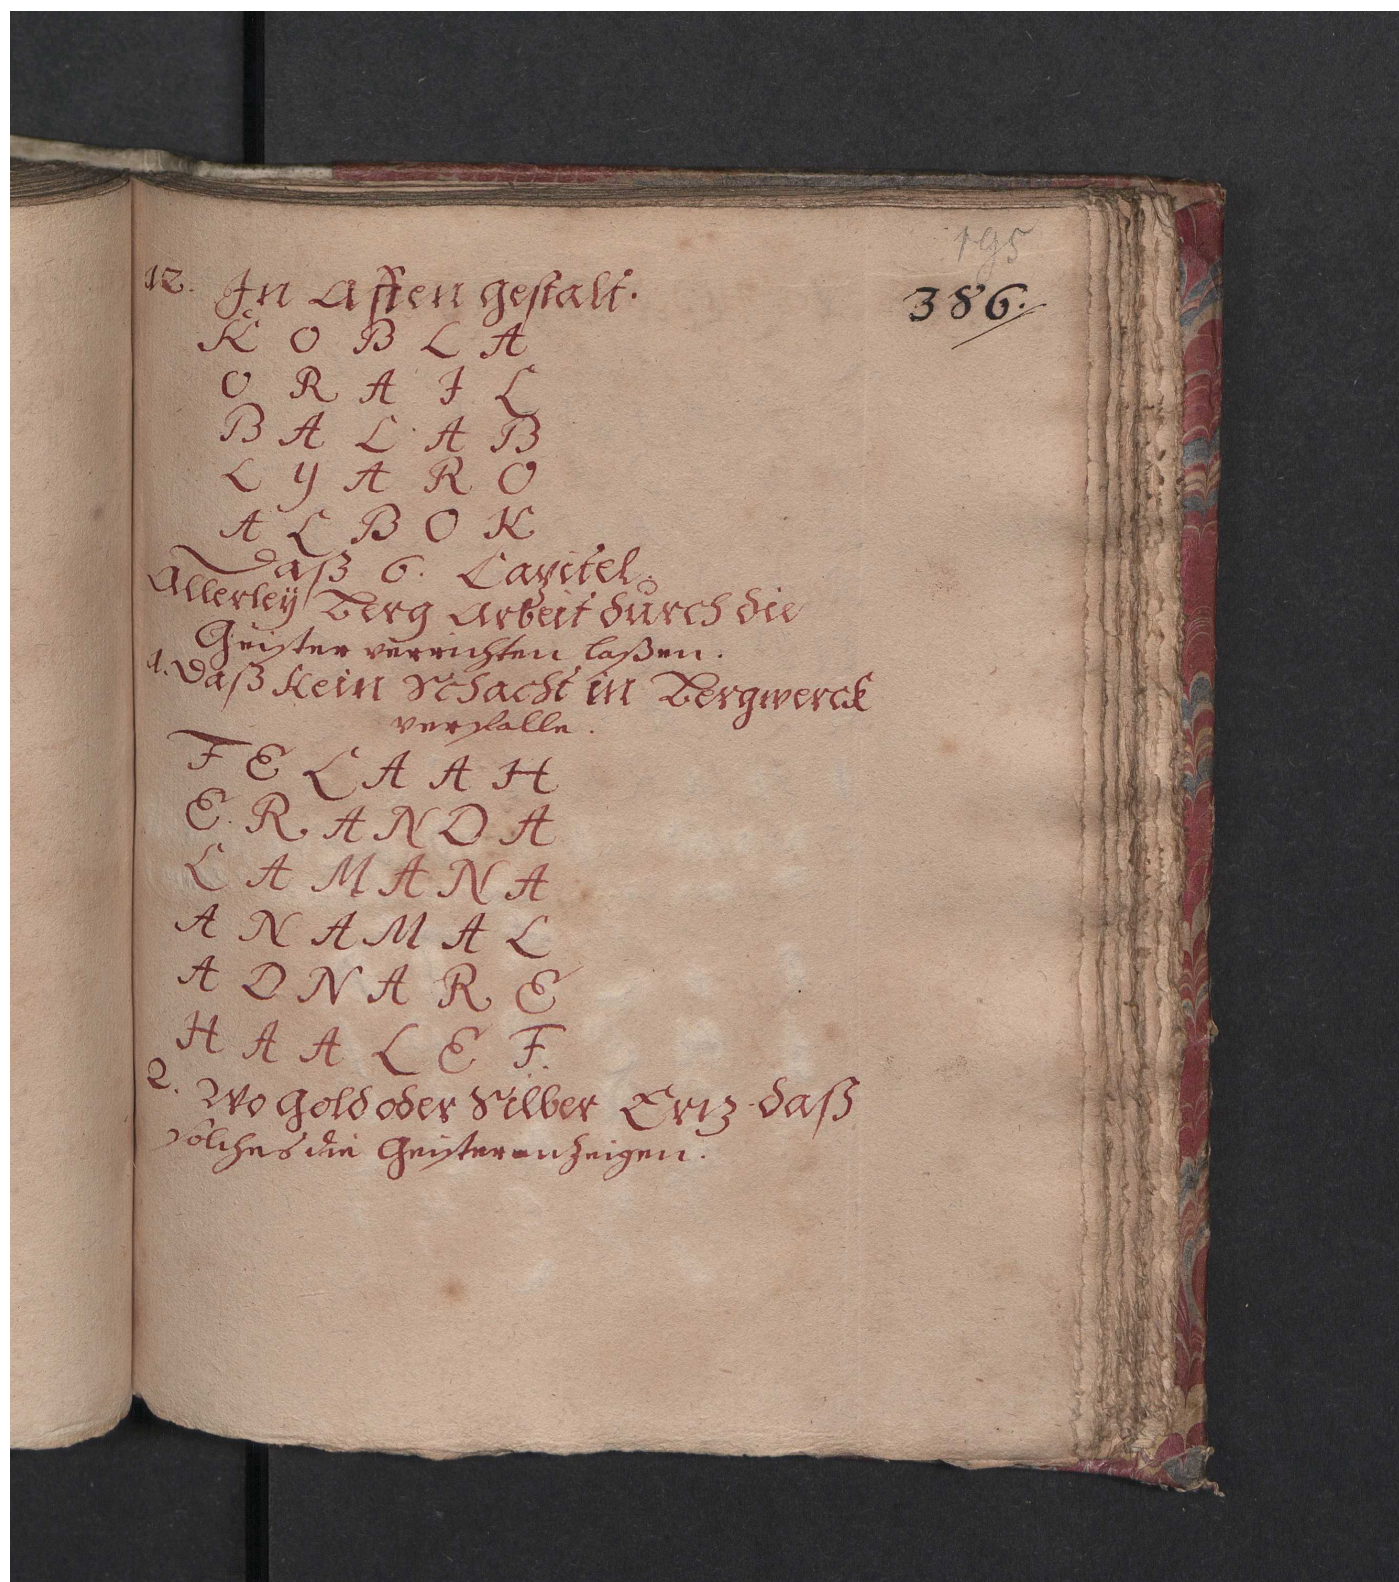 195
386.
12. In Affen gestalt.
K O B L A
O R A I L
B A L A B
L Y A R O
A L B O K
Daß 6. Capitel.
Allerleÿ Berg Arbeit durch die
Geister verrichten laßen.
1. Daß kein Schacht in Bergwerck
verfalle.
F E L A A H
E. R A N D A
L A M A N A
A N A M A L
A D N A R E
H A A L E F.
2. Wo Gold oder Silber Ertz daß
solches die Geister anzeigen.